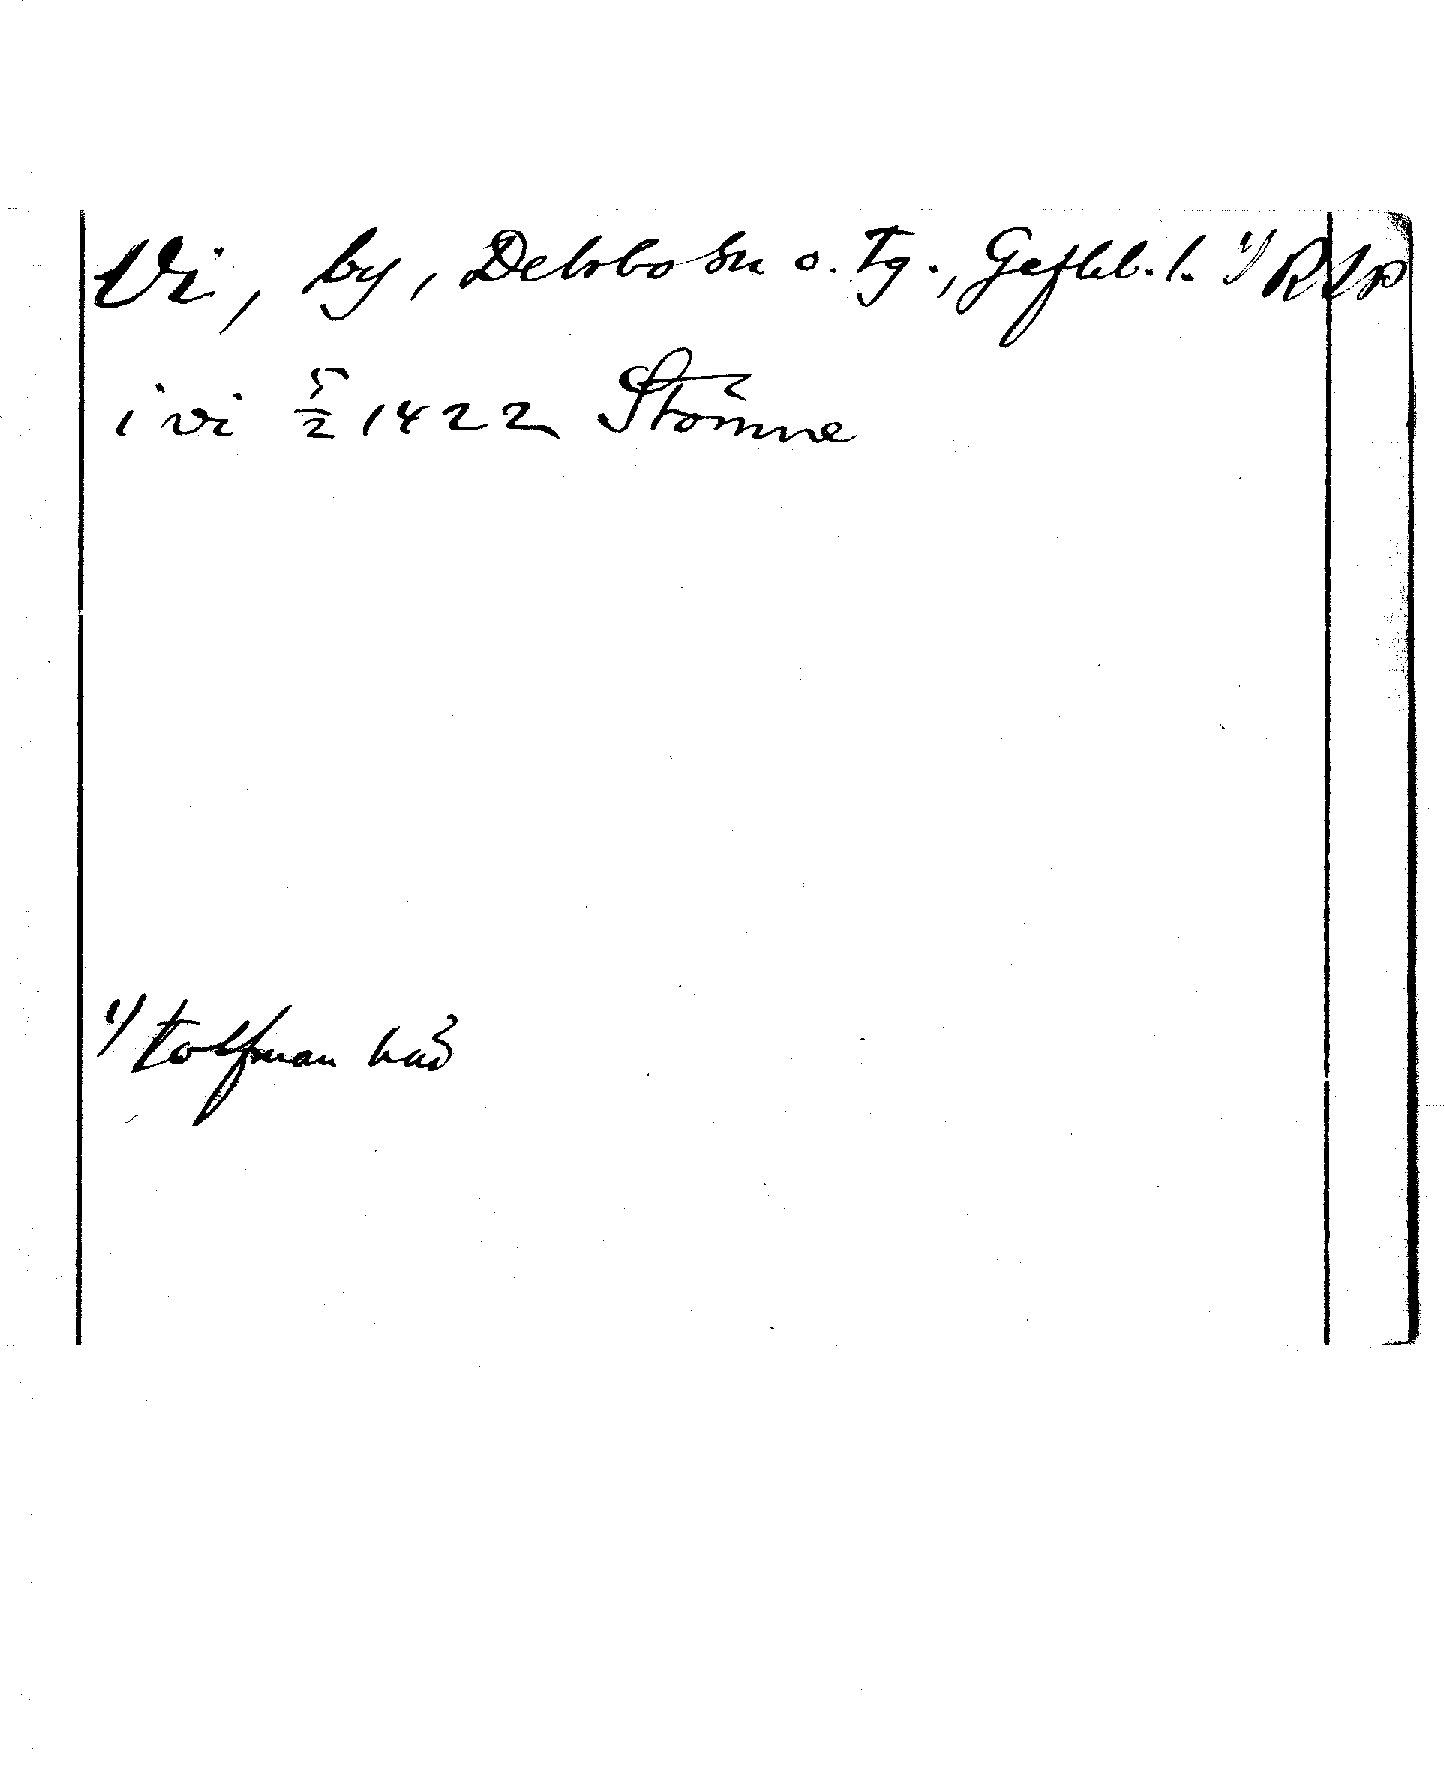 Vi, by, Delsbo sn o. tg., Gefleb. l. 1) RAp
i vi 5/2 1422 Stömne
1) tolfman had